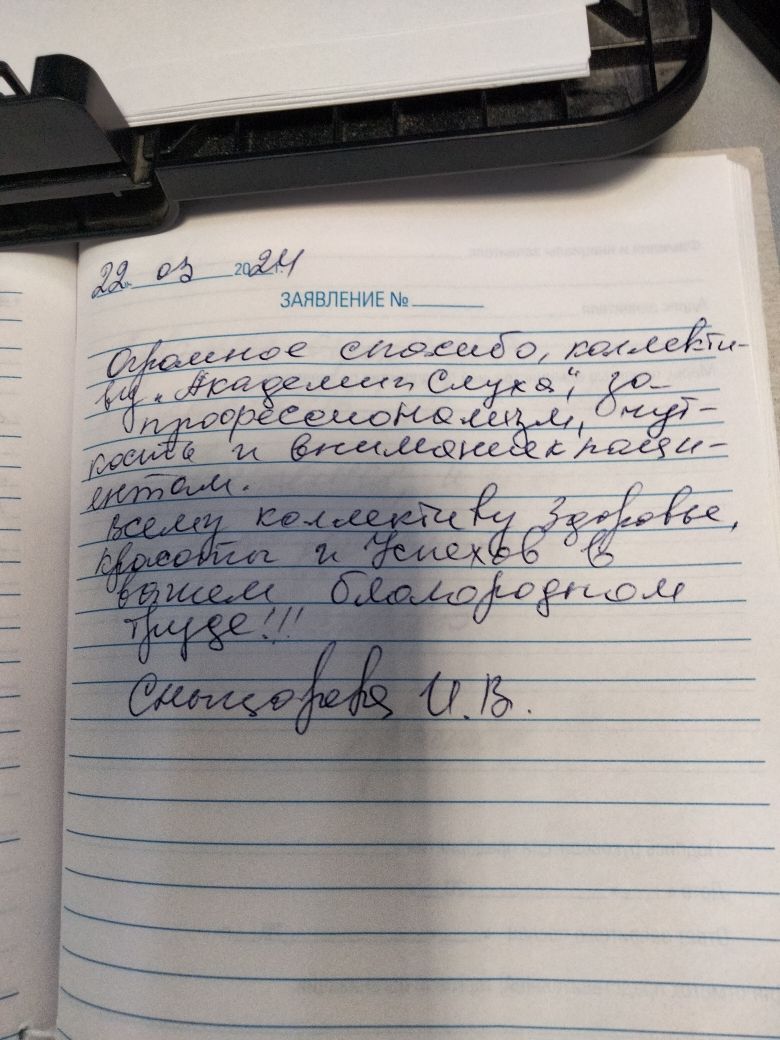 22. 03 2024 г.
ЗАЯВЛЕНИЕ №
Огромное спасибо, коллекти-
ву „Академии Слуха“, за
профессионализм, чут-
кость и внимание к паци-
ентам.
Всему коллективу Здоровье,
красоты и Успехов в
вашем благородном
труде!!!
И.В.